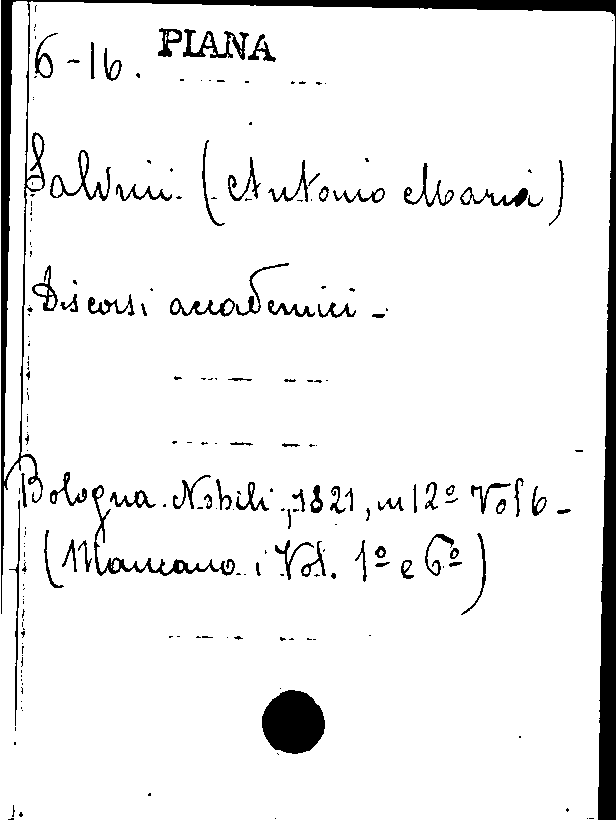 6-16. PIANA
Salvini (Antonio Maria)
Discorsi accademici -
Bologna. Nobili, 1821, in 12º Vol 6 -
(Mancano i Vol. 1º e 6º)